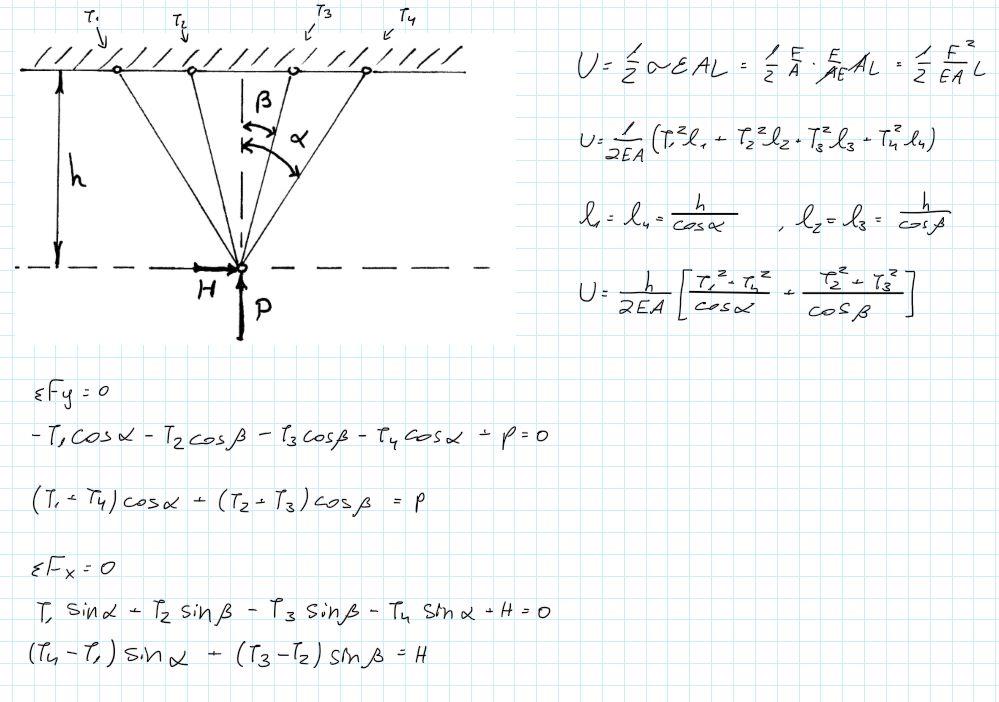 T₁ T₂ T₃ T₄
β
α
h
H
P
U = 1/2 σ ε A L = 1/2 F/A · F/AE A L = 1/2 F²/EA L
U = 1/2EA (T₁² l₁ + T₂² l₂ + T₃² l₃ + T₄² l₄)
l₁ = l₄ = h/cosα , l₂ = l₃ = h/cosβ
U = h/2EA [ T₁² + T₄²/cosα + T₂² + T₃²/cosβ ]
ΣFy = 0
- T₁ cosα - T₂ cosβ - T₃ cosβ - T₄ cosα + P = 0
(T₁ + T₄) cosα + (T₂ + T₃) cosβ = P
ΣFx = 0
T₁ sinα + T₂ sinβ - T₃ sinβ - T₄ sinα + H = 0
(T₄ - T₁) sinα + (T₃ - T₂) sinβ = H